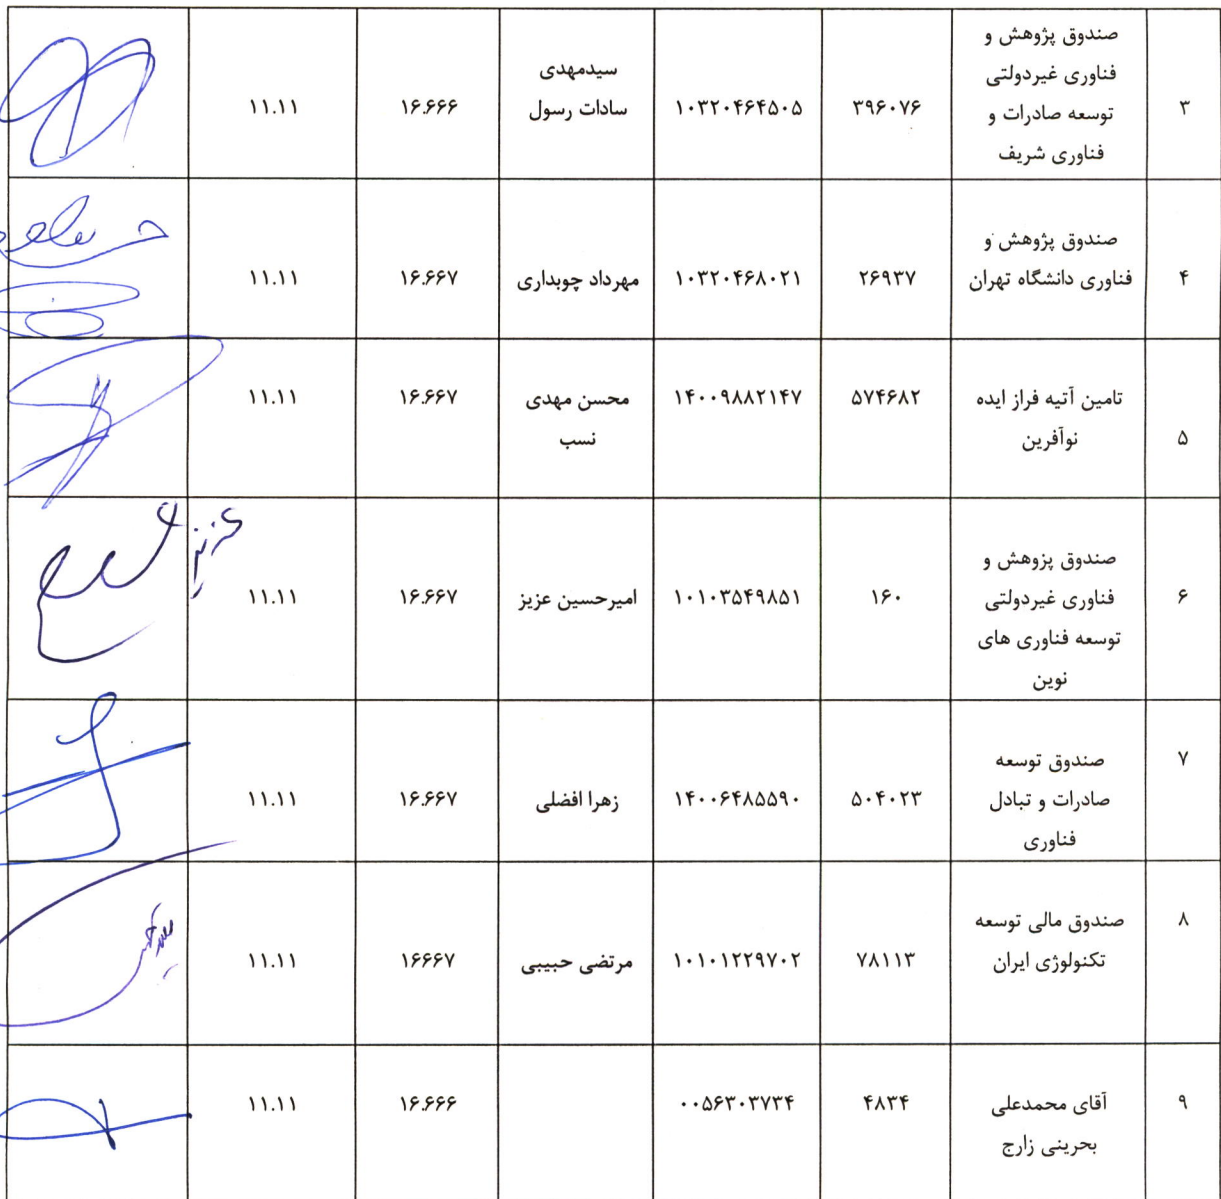 ۳
صندوق پژوهش و
فناوری غیردولتی
توسعه صادرات و
فناوری شریف
۳۹۶۰۷۶
۱۰۳۲۰۴۶۴۵۰۵
سیدمهدی
سادات رسول
۱۶.۶۶۶
۱۱.۱۱
۴
صندوق پژوهش و
فناوری دانشگاه تهران
۲۶۹۳۷
۱۰۳۲۰۴۶۸۰۲۱
مهرداد چوبداری
۱۶.۶۶۷
۱۱.۱۱
۵
تامین آتیه فراز ایده
نوآفرین
۵۷۴۶۸۲
۱۴۰۰۹۸۸۲۱۴۷
محسن مهدی
نسب
۱۶.۶۶۷
۱۱.۱۱
۶
صندوق پزوهش و
فناوری غیردولتی
توسعه فناوری های
نوین
۱۶۰
۱۰۱۰۳۵۴۹۸۵۱
امیرحسین عزیز
۱۶.۶۶۷
۱۱.۱۱
عزیز
۷
صندوق توسعه
صادرات و تبادل
فناوری
۵۰۴۰۲۳
۱۴۰۰۶۴۸۵۵۹۰
زهرا افضلی
۱۶.۶۶۷
۱۱.۱۱
۸
صندوق مالی توسعه
تکنولوژی ایران
۷۸۱۱۳
۱۰۱۰۱۲۲۹۷۰۲
مرتضی حبیبی
۱۶۶۶۷
۱۱.۱۱
۹
آقای محمدعلی
بحرینی زارج
۴۸۳۴
۰۰۵۶۳۰۳۷۳۴
۱۶.۶۶۶
۱۱.۱۱